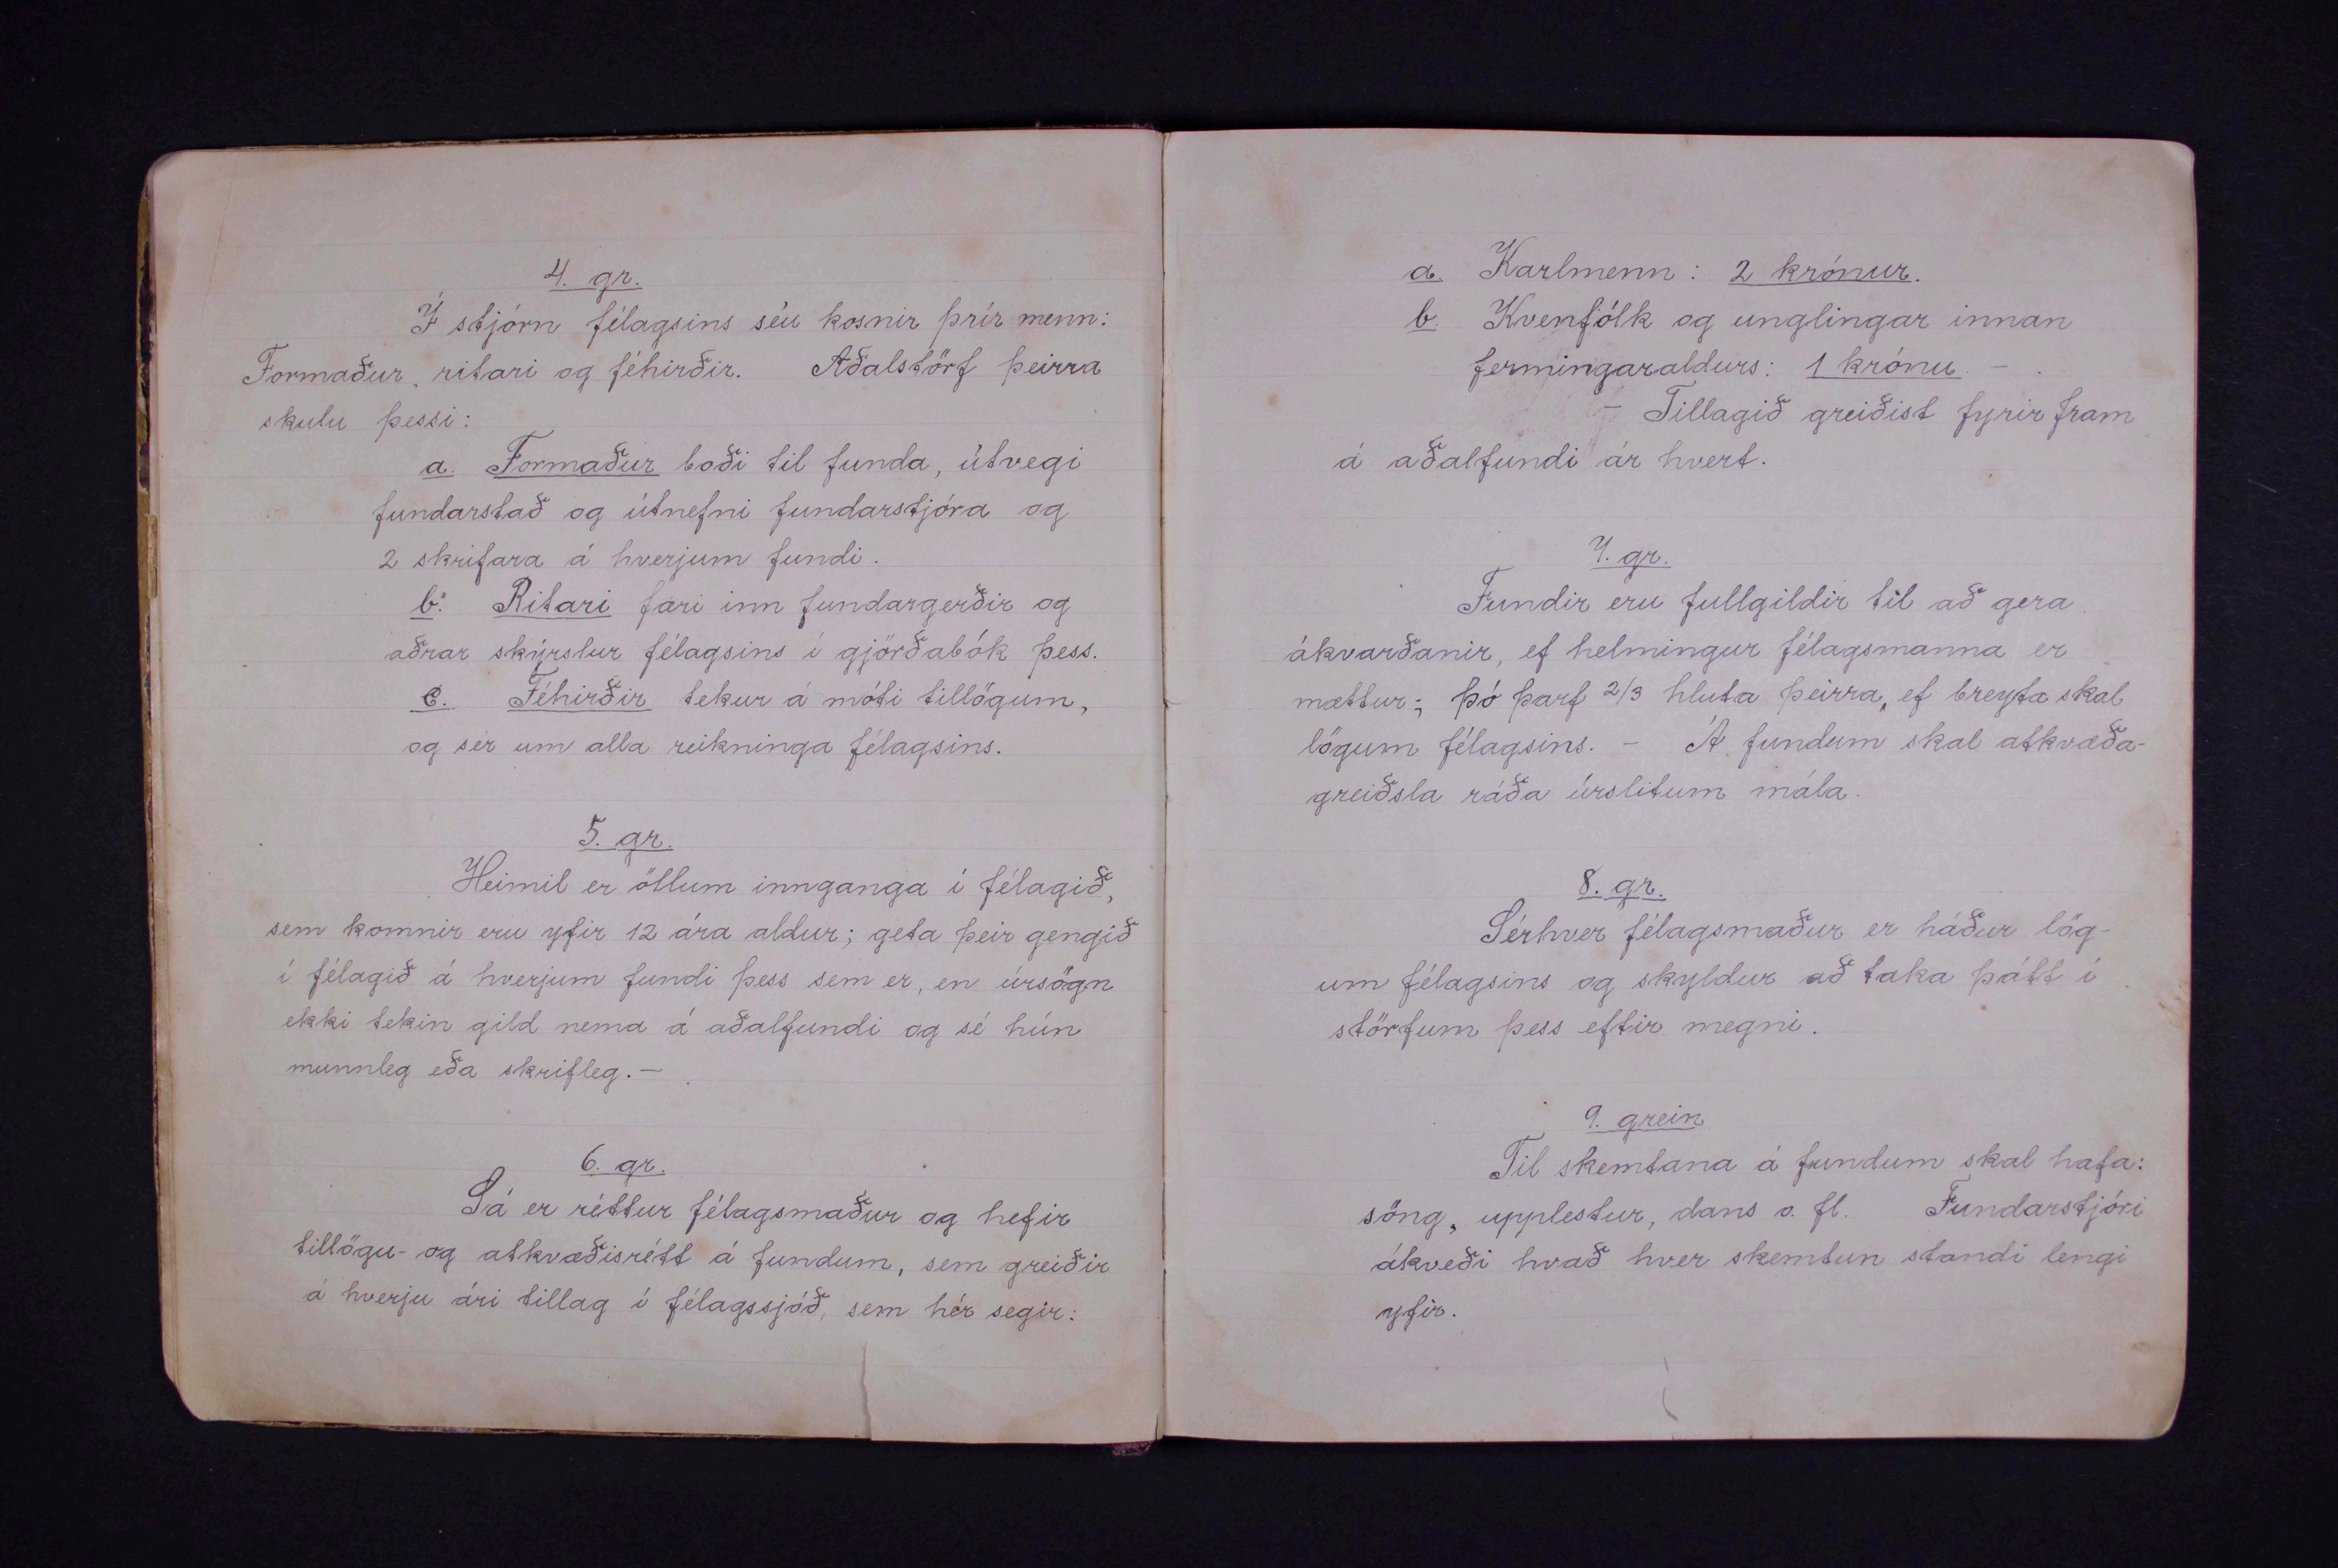 4. gr.
Í stjórn félagsins séu kosnir þrír menn:
Formaður, ritari og féhirðir. Aðalstörf þeirra
skulu þessi:
a. Formaður boði til funda, útvegi
fundarstað og útnefni fundarstjóra og
2 skrifara á hverjum fundi.
b. Ritari færi inn fundargerðir og
aðrar skýrslur félagsins í gjörðabók þess.
c. Féhirðir tekur á móti tillögum,
og sér um alla reikninga félagsins.
5. gr.
Heimil er öllum innganga í félagið,
sem komnir eru yfir 12 ára aldur; geta þeir gengið
í félagið á hverjum fundi þess sem er, en úrsögn
ekki tekin gild nema á aðalfundi og sé hún
munnleg eða skrifleg. -
6. gr.
Sá er réttur félagsmaður og hefir
tillögu- og atkvæðisrétt á fundum, sem greiðir
á hverju ári tillag í félagssjóð, sem hér segir:
a. Karlmenn: 2 krónur.
b. Kvenfólk og unglingar innan
fermingaraldurs: 1 krónu. -
- Tillagið greiðist fyrir fram
á aðalfundi ár hvert.
7. gr.
Fundir eru fullgildir til að gera
ákvarðanir, ef helmingur félagsmanna er
mættur; þó þarf 2/3 hluta þeirra, ef breyta skal
lögum félagsins. - Á fundum skal atkvæða-
greiðsla ráða úrslitum mála.
8. gr.
Sérhver félagsmaður er háður lög-
um félagsins og skyldur að taka þátt í
störfum þess eftir megni.
9. grein
Til skemtana á fundum skal hafa:
söng, upplestur, dans o. fl. Fundarstjóri
ákveði hvað hver skemtun standi lengi
yfir.